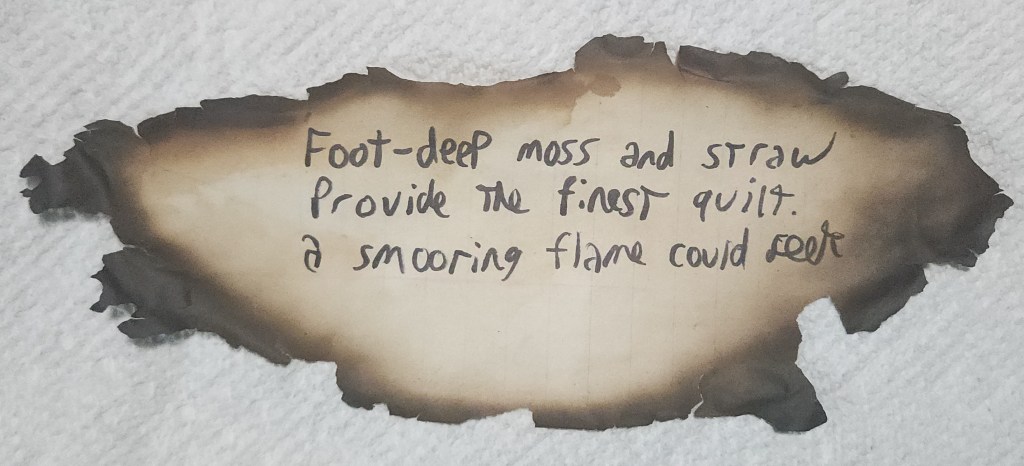 Foot-deep moss and straw
Provide the finest quilt.
a smooring flame could seek